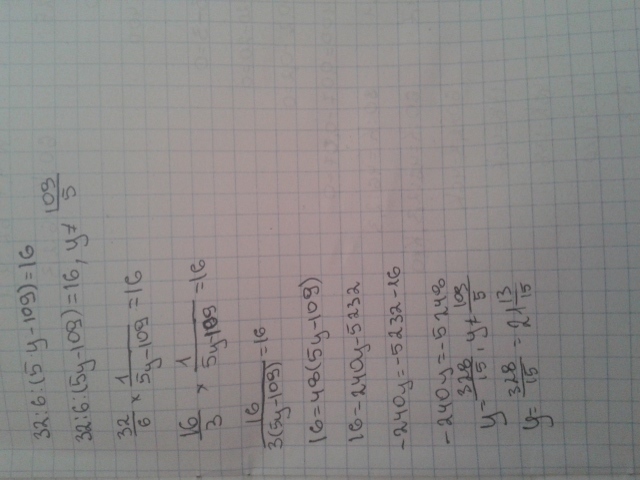 32:6:(5y-109)=16
32:6:(5y-109)=16, y≠ 109/5
32/6 × 1/(5y-109) =16
16/3 × 1/(5y-109) =16
16/(3(5y-109)) =16
16=48(5y-109)
16=240y-5232
-240y=-5232-16
-240y=-5248
y= 328/15, y≠ 109/5
y= 328/15 =21 13/15